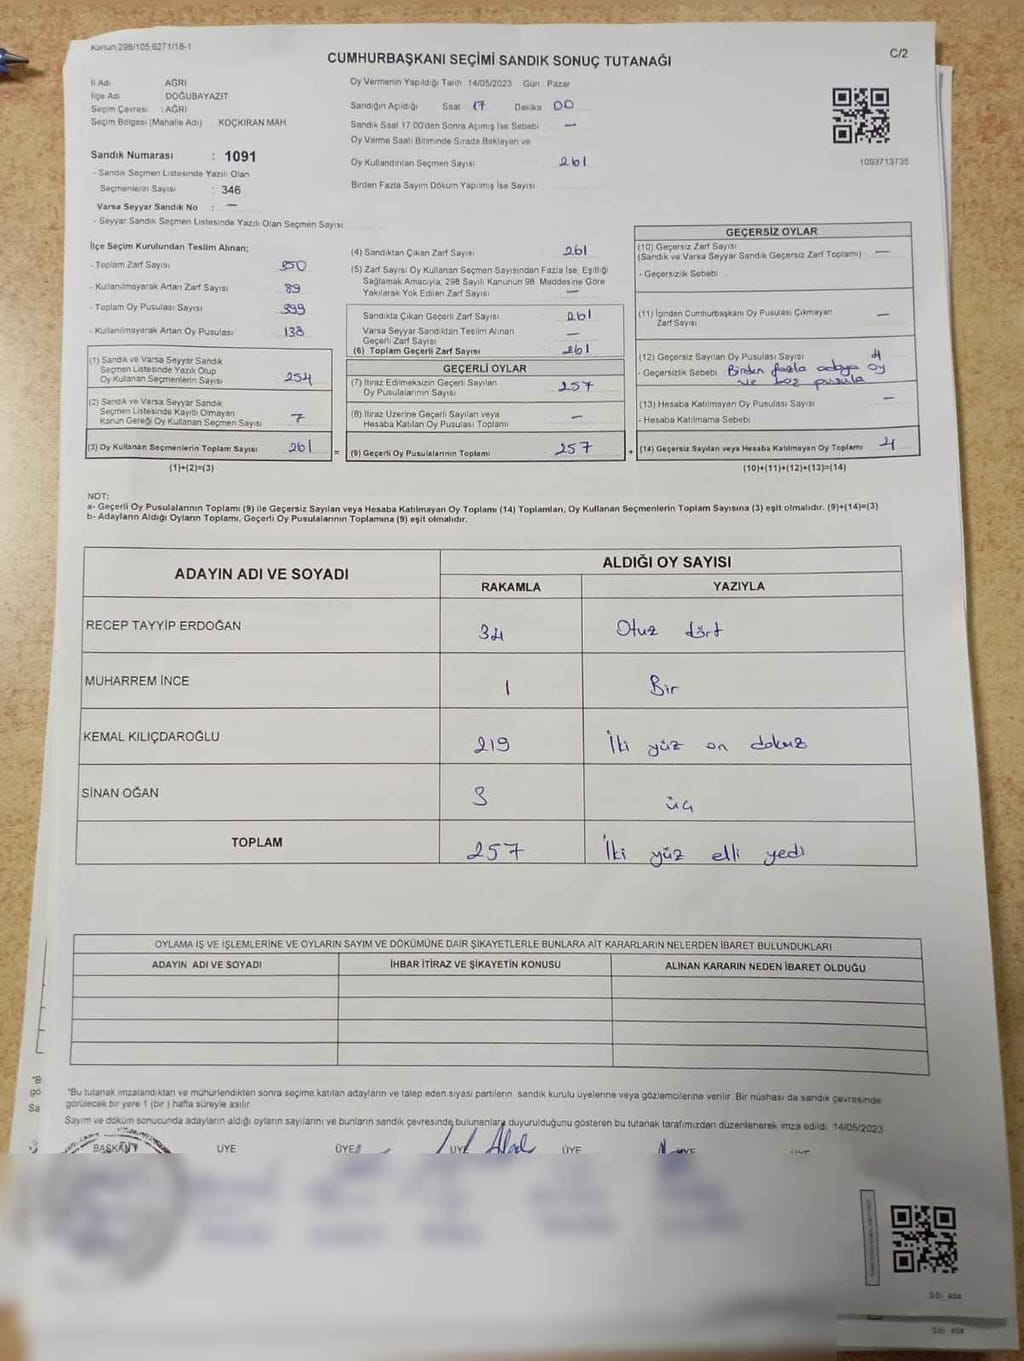 Kanun 298/105 6271/18-1
CUMHURBAŞKANI SEÇİMİ SANDIK SONUÇ TUTANAĞI
C/2
İl Adı AĞRI
İlçe Adı DOĞUBAYAZIT
Seçim Çevresi : AĞRI
Seçim Bölgesi (Mahalle Adı) KOÇKIRAN MAH
Sandık Numarası : 1091
- Sandık Seçmen Listesinde Yazılı Olan
Seçmenlerin Sayısı : 346
Varsa Seyyar Sandık No : —
- Seyyar Sandık Seçmen Listesinde Yazılı Olan Seçmen Sayısı
Oy Vermenin Yapıldığı Tarih 14/05/2023 Gün Pazar
Sandığın Açıldığı Saat 17 Dakika 00
Sandık Saat 17:00'den Sonra Açılmış İse Sebebi —
Oy Verme Saati Bitiminde Sırada Bekleyen ve
Oy Kullandırılan Seçmen Sayısı 261
Birden Fazla Sayım Döküm Yapılmış İse Sayısı
1093713735
İlçe Seçim Kurulundan Teslim Alınan;
- Toplam Zarf Sayısı 350
- Kullanılmayarak Artan Zarf Sayısı 89
- Toplam Oy Pusulası Sayısı 399
- Kullanılmayarak Artan Oy Pusulası 138
(1) Sandık ve Varsa Seyyar Sandık
Seçmen Listesinde Yazılı Olup
Oy Kullanan Seçmenlerin Sayısı 254
(2) Sandık ve Varsa Seyyar Sandık
Seçmen Listesinde Kayıtlı Olmayan
Kanun Gereği Oy Kullanan Seçmen Sayısı 7
(3) Oy Kullanan Seçmenlerin Toplam Sayısı 261 =
(1)+(2)=(3)
(4) Sandıktan Çıkan Zarf Sayısı 261
(5) Zarf Sayısı Oy Kullanan Seçmen Sayısından Fazla İse, Eşitliği
Sağlamak Amacıyla, 298 Sayılı Kanunun 98. Maddesine Göre
Yakılarak Yok Edilen Zarf Sayısı —
Sandıkta Çıkan Geçerli Zarf Sayısı 261
Varsa Seyyar Sandıktan Teslim Alınan
Geçerli Zarf Sayısı —
(6) Toplam Geçerli Zarf Sayısı 261
GEÇERLİ OYLAR
(7) İtiraz Edilmeksizin Geçerli Sayılan
Oy Pusulalarının Sayısı 257
(8) İtiraz Üzerine Geçerli Sayılan veya
Hesaba Katılan Oy Pusulası Toplamı —
(9) Geçerli Oy Pusulalarının Toplamı 257 +
GEÇERSİZ OYLAR
(10) Geçersiz Zarf Sayısı
(Sandık ve Varsa Seyyar Sandık Geçersiz Zarf Toplamı) —
- Geçersizlik Sebebi
(11) İçinden Cumhurbaşkanı Oy Pusulası Çıkmayan
Zarf Sayısı —
(12) Geçersiz Sayılan Oy Pusulası Sayısı 4
- Geçersizlik Sebebi Birden fazla adaya oy
ve boz pusula
(13) Hesaba Katılmayan Oy Pusulası Sayısı —
- Hesaba Katılmama Sebebi
(14) Geçersiz Sayılan veya Hesaba Katılmayan Oy Toplamı 4
(10)+(11)+(12)+(13)=(14)
NOT:
a- Geçerli Oy Pusulalarının Toplamı (9) ile Geçersiz Sayılan veya Hesaba Katılmayan Oy Toplamı (14) Toplamları, Oy Kullanan Seçmenlerin Toplam Sayısına (3) eşit olmalıdır. (9)+(14)=(3)
b- Adayların Aldığı Oyların Toplamı, Geçerli Oy Pusulalarının Toplamına (9) eşit olmalıdır.
ADAYIN ADI VE SOYADI
ALDIĞI OY SAYISI
RAKAMLA YAZIYLA
RECEP TAYYİP ERDOĞAN 34 Otuz dört
MUHARREM İNCE 1 Bir
KEMAL KILIÇDAROĞLU 219 İki yüz on dokuz
SİNAN OĞAN 3 üç
TOPLAM 257 İki yüz elli yedi
OYLAMA İŞ VE İŞLEMLERİNE VE OYLARIN SAYIM VE DÖKÜMÜNE DAİR ŞİKAYETLERLE BUNLARA AİT KARARLARIN NELERDEN İBARET BULUNDUKLARI
ADAYIN ADI VE SOYADI İHBAR İTİRAZ VE ŞİKAYETİN KONUSU ALINAN KARARIN NEDEN İBARET OLDUĞU
"B
gö
Sa
"Bu tutanak imzalandıktan ve mühürlendikten sonra seçime katılan adayların ve talep eden siyasi partilerin sandık kurulu üyelerine veya gözlemcilerine verilir. Bir nüshası da sandık çevresinde
görülecek bir yere 1 (bir) hafta süreyle asılır.
Sayım ve döküm sonucunda adayların aldığı oyların sayılarını ve bunların sandık çevresinde bulunanlara duyurulduğunu gösteren bu tutanak tarafımızdan düzenlenerek imza edildi. 14/05/2023
BAŞKAN ÜYE ÜYE ÜYE ÜYE
SBİ_404
SBİ_404